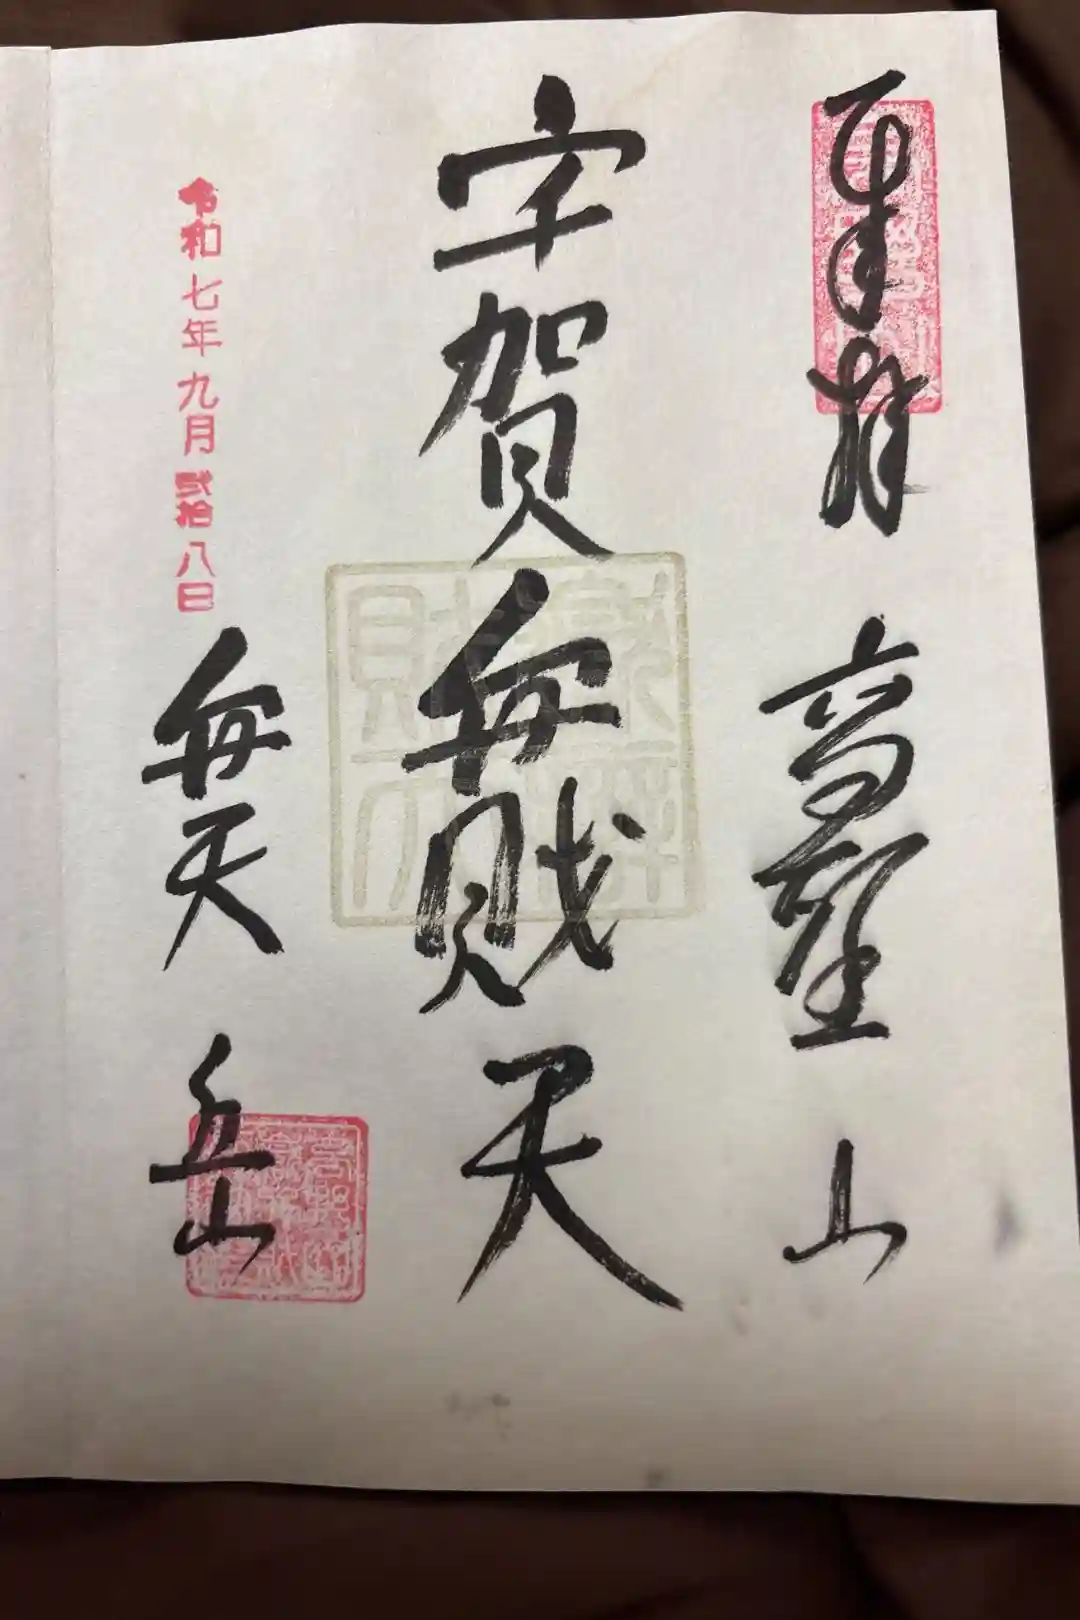 奉拝 高野山
宇賀弁財天
弁天岳
令和七年九月弐拾八日